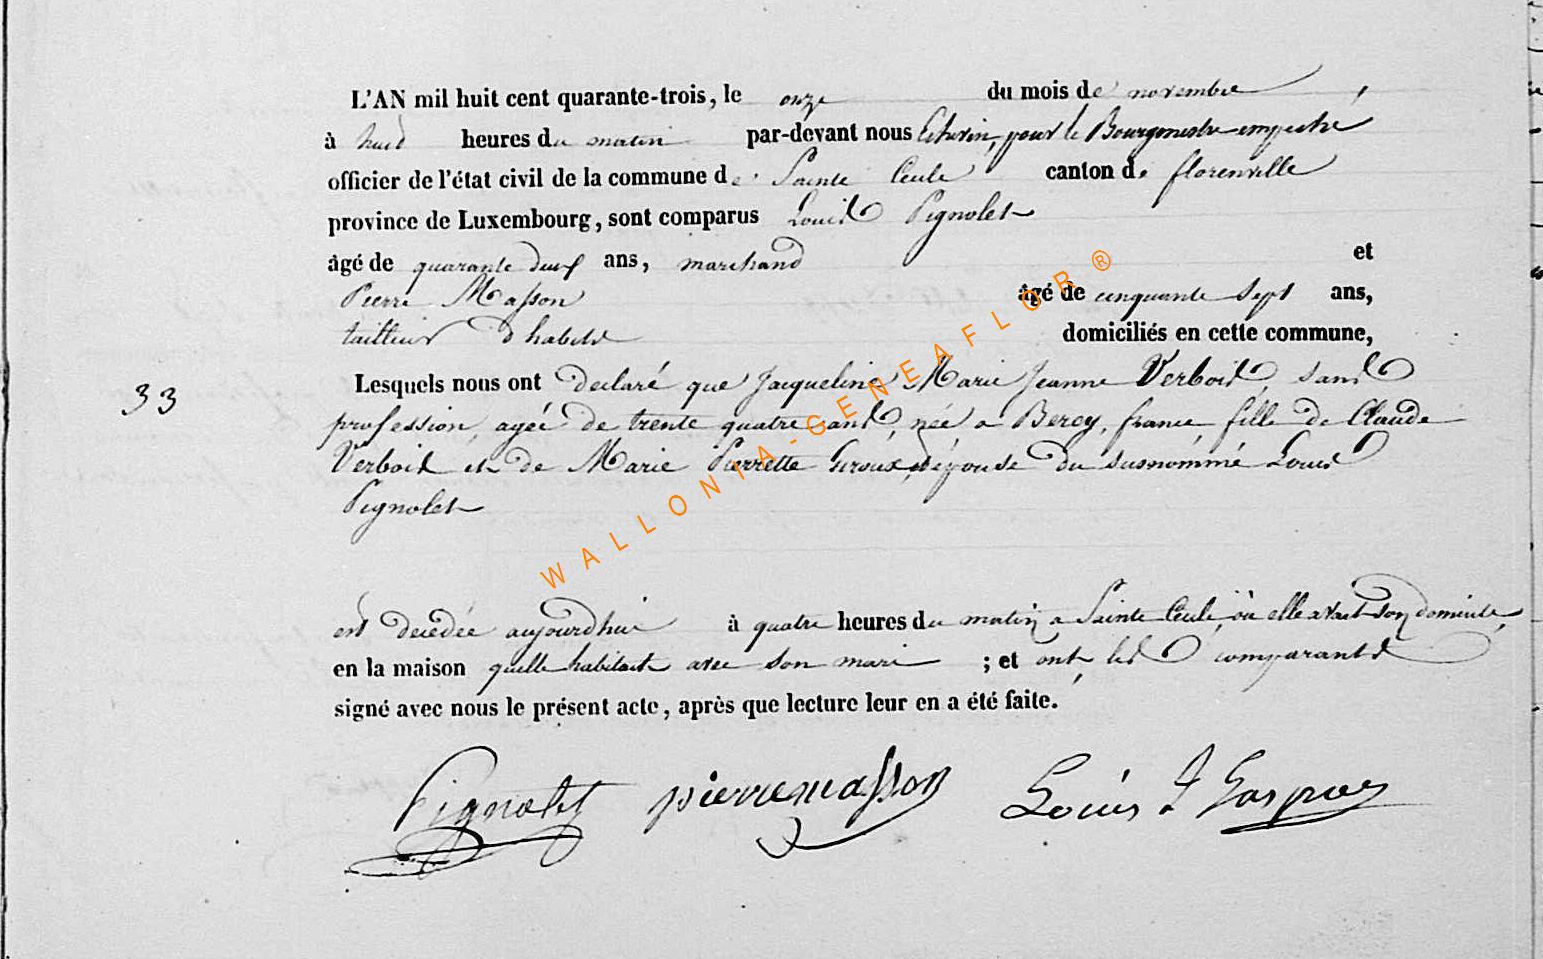 L'AN mil huit cent quarante-trois, le onze du mois de novembre,
à huit heures du matin par-devant nous Echevin, pour le Bourgmestre empeché
officier de l'état civil de la commune de Sainte Cecile canton de florenville
province de Luxembourg, sont comparus Louis Pignolet
âgé de quarante deux ans, marchand et
Pierre Masson âgé de cinquante sept ans,
tailleur d'habits domiciliés en cette commune,
33
Lesquels nous ont declaré que Jacqueline Marie Jeanne Verboit, sans
profession, agée de trente quatre ans, née a Bercy, france, fille de Claude
Verboit et de Marie Pierrette Giroux, épouse du susnommé Louis
Pignolet
est decedée aujourdhui à quatre heures du matin a Sainte Cecile, où elle avait son domicile,
en la maison quelle habitait avec son mari ; et ont les comparants
signé avec nous le présent acte, après que lecture leur en a été faite.
Pignolet pierre masson Louis J Gaspar
WALLONIA-GENEAFLOR ®